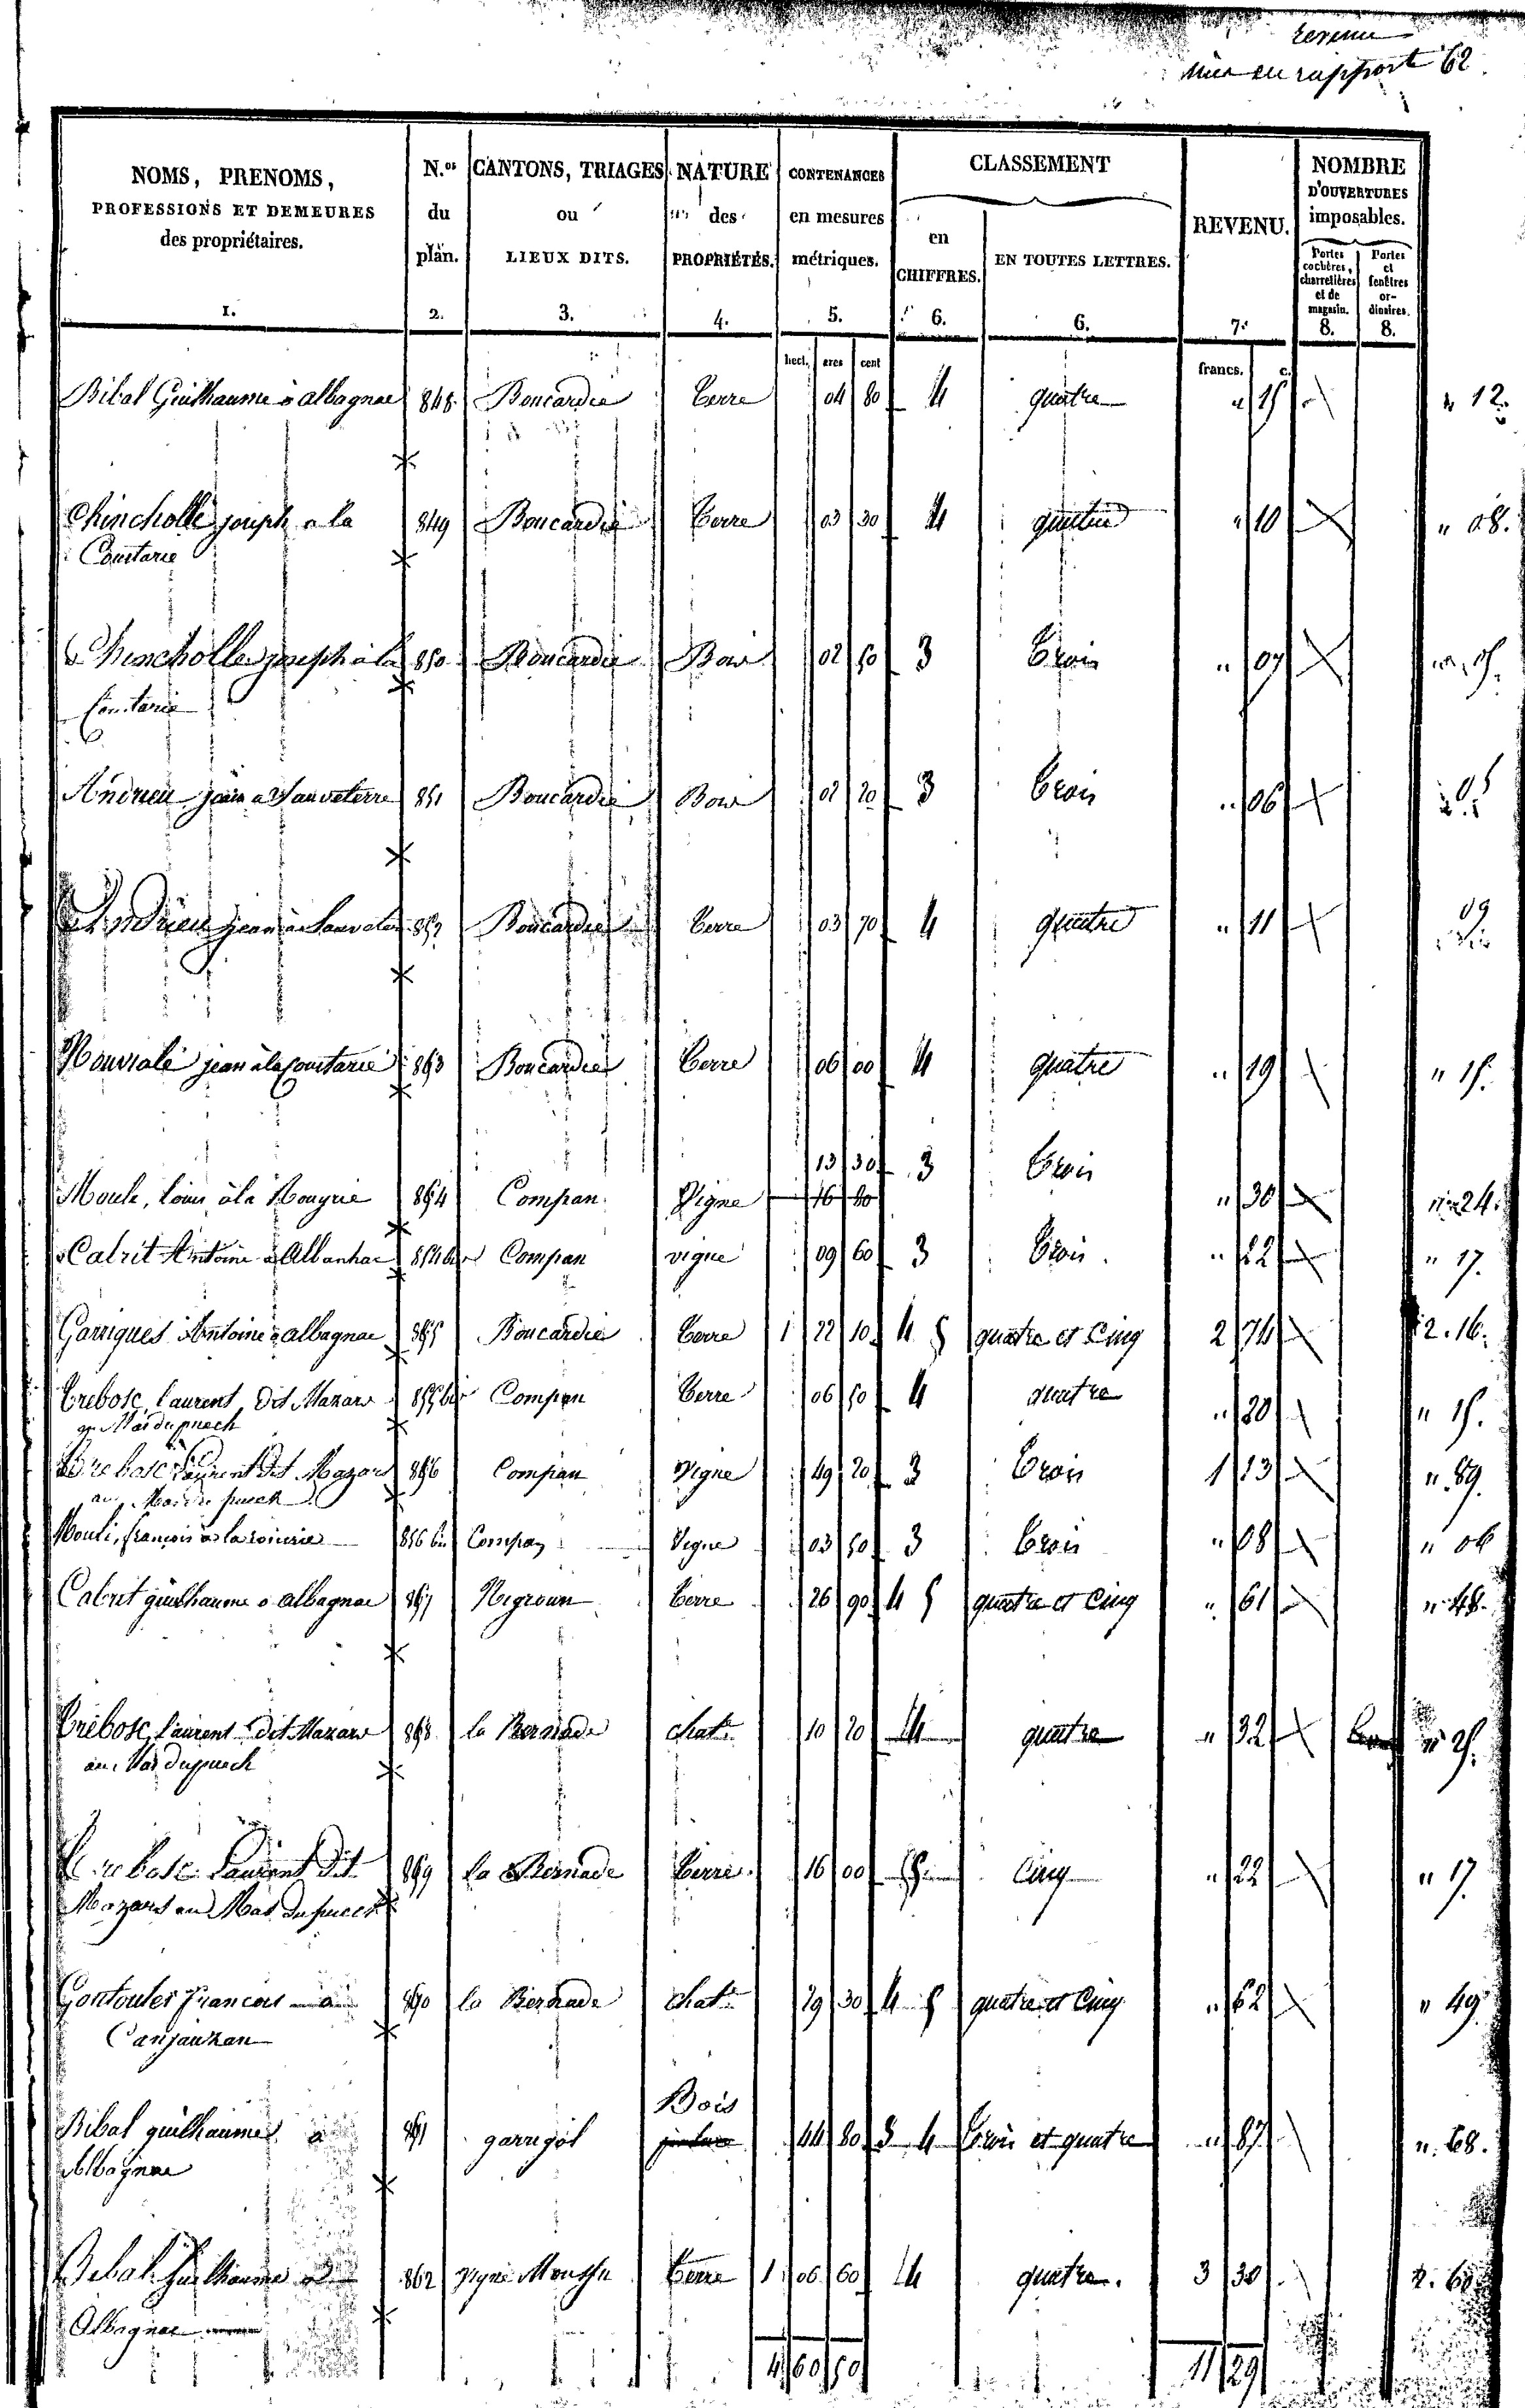 revenu
mis en rapport 62
NOMS, PRENOMS, PROFESSIONS ET DEMEURES des propriétaires. 1.
N.os du plan. 2.
CANTONS, TRIAGES ou LIEUX DITS. 3.
NATURE des PROPRIÉTÉS. 4.
CONTENANCES en mesures métriques. 5.
CLASSEMENT
en CHIFFRES. 6.
EN TOUTES LETTRES. 6.
REVENU. 7.
NOMBRE D'OUVERTURES imposables.
Portes cochères, charretières et de magasin. 8.
Portes et fenêtres ordinaires. 8.
hect. ares cent francs. c.
Bibal Guilhaume à albagnac 848 Boucardié terre 04 80 4 quatre " 15 " 12.
Chincholle joseph a la 849 Boucardié terre 03 30 4 quatre " 10 " 08.
Coustarie
Chincholle joseph à la 850 Boucardié Bois 02 50 3 trois " 07
Coustarie
Andrieu jean a Sauveterre 851 Boucardié Bois 02 20 3 trois " 06
Andrieu jean à Sauveterre 852 Boucardié terre 03 70 4 quatre " 11 09
Nouviale jean à la Coustarie 853 Boucardié terre 06 00 4 quatre " 19 " 15.
13 30 3 trois
Mouli, louis à la 854 Compan Vigne 16 80 " 30 " 24.
Calrit Antoine à Albanhac 854 bis Compan vigne 09 60 3 trois " 22 " 17.
Garrigues Antoine à albagnac 855 Boucardié terre 1 22 10 4 5 quatre et Cinq 2 74 2. 16.
trebosc, laurent, dit Mazars 855 bis Compan terre 06 50 4 quatre " 20 " 15.
Mas dupuech
trebosc laurent dit Mazars 856 Compan Vigne 49 20 3 trois 1 13 " 89.
au Mas du puech
Mouli, françois à la 856 bis Compan Vigne 03 50 3 trois " 08 " 06
Calrit guilhaume à albagnac 857 Nigroun terre 26 90 4 5 quatre et Cinq " 61 " 48.
trebosc, laurent dit Mazars 858 la Bernade chat. 10 20 4 quatre " 32 " 25.
au Mas dupuech
trebosc laurent dit 859 la Bernade terre 16 00 5 Cinq " 22 " 17.
Mazars au Mas du puech
Gontouler françois à 860 la Bernade chat. 29 30 4 5 quatre et Cinq " 62 " 49
Canjauzan
Bois
Bibal guilhaume à 861 garrigol 44 80 3 4 trois et quatre " 87 " 68.
Albagnac
Bibal guilhaume à 862 Vigne terre 1 06 60 4 quatre. 3 30 2. 60
Albagnac
4 60 50 11 29